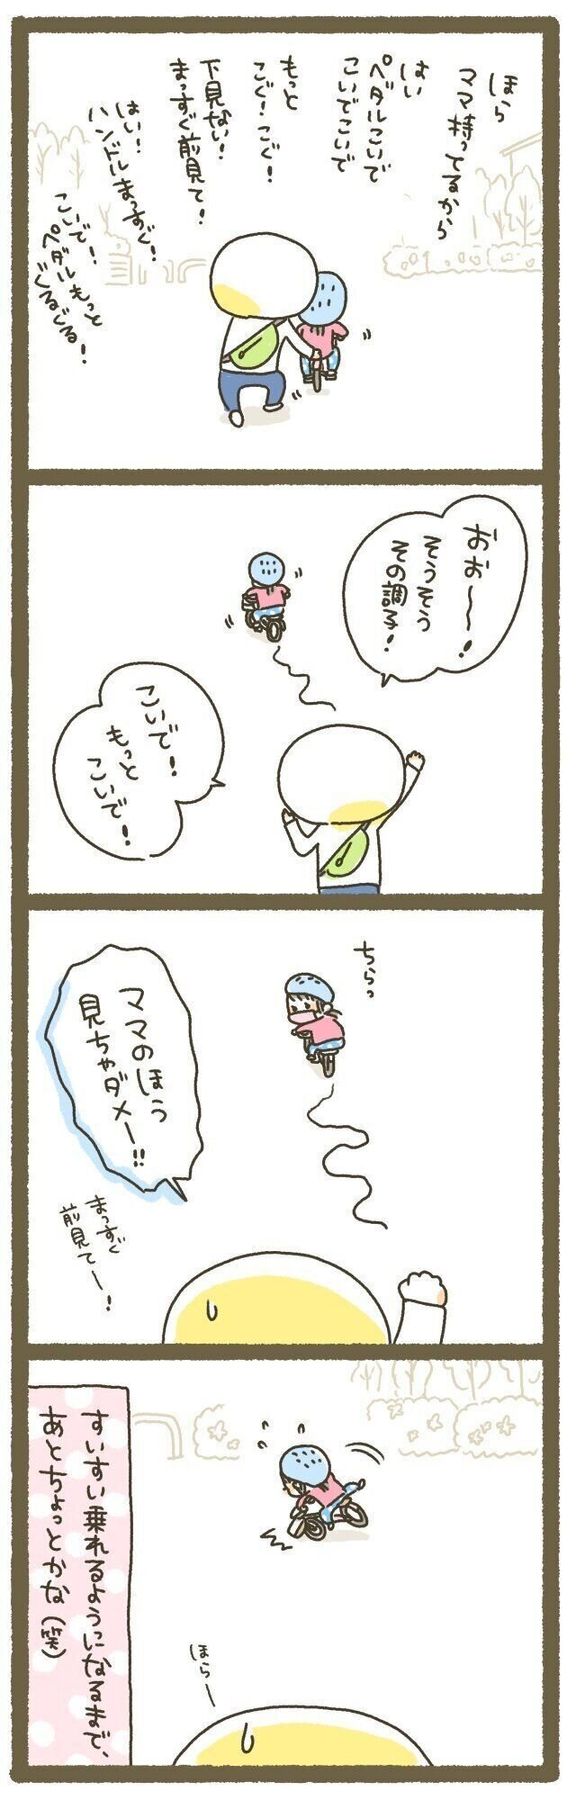 ほら
ママ持ってるから
はい
ペダルこいで
こいでこいで
もっと
こぐ!こぐ!
下見ない!
まっすぐ前見て!
はい!
ハンドルまっすぐ!
こいで!
ペダルもっと
ぐるぐる!
おお〜!
そうそう
その調子!
こいで!
もっと
こいで!
ちらっ
ママのほう
見ちゃダメー!!
まっすぐ
前見てー!
ほらー
すいすい乗れるようになるまで、
あとちょっとかな(笑)